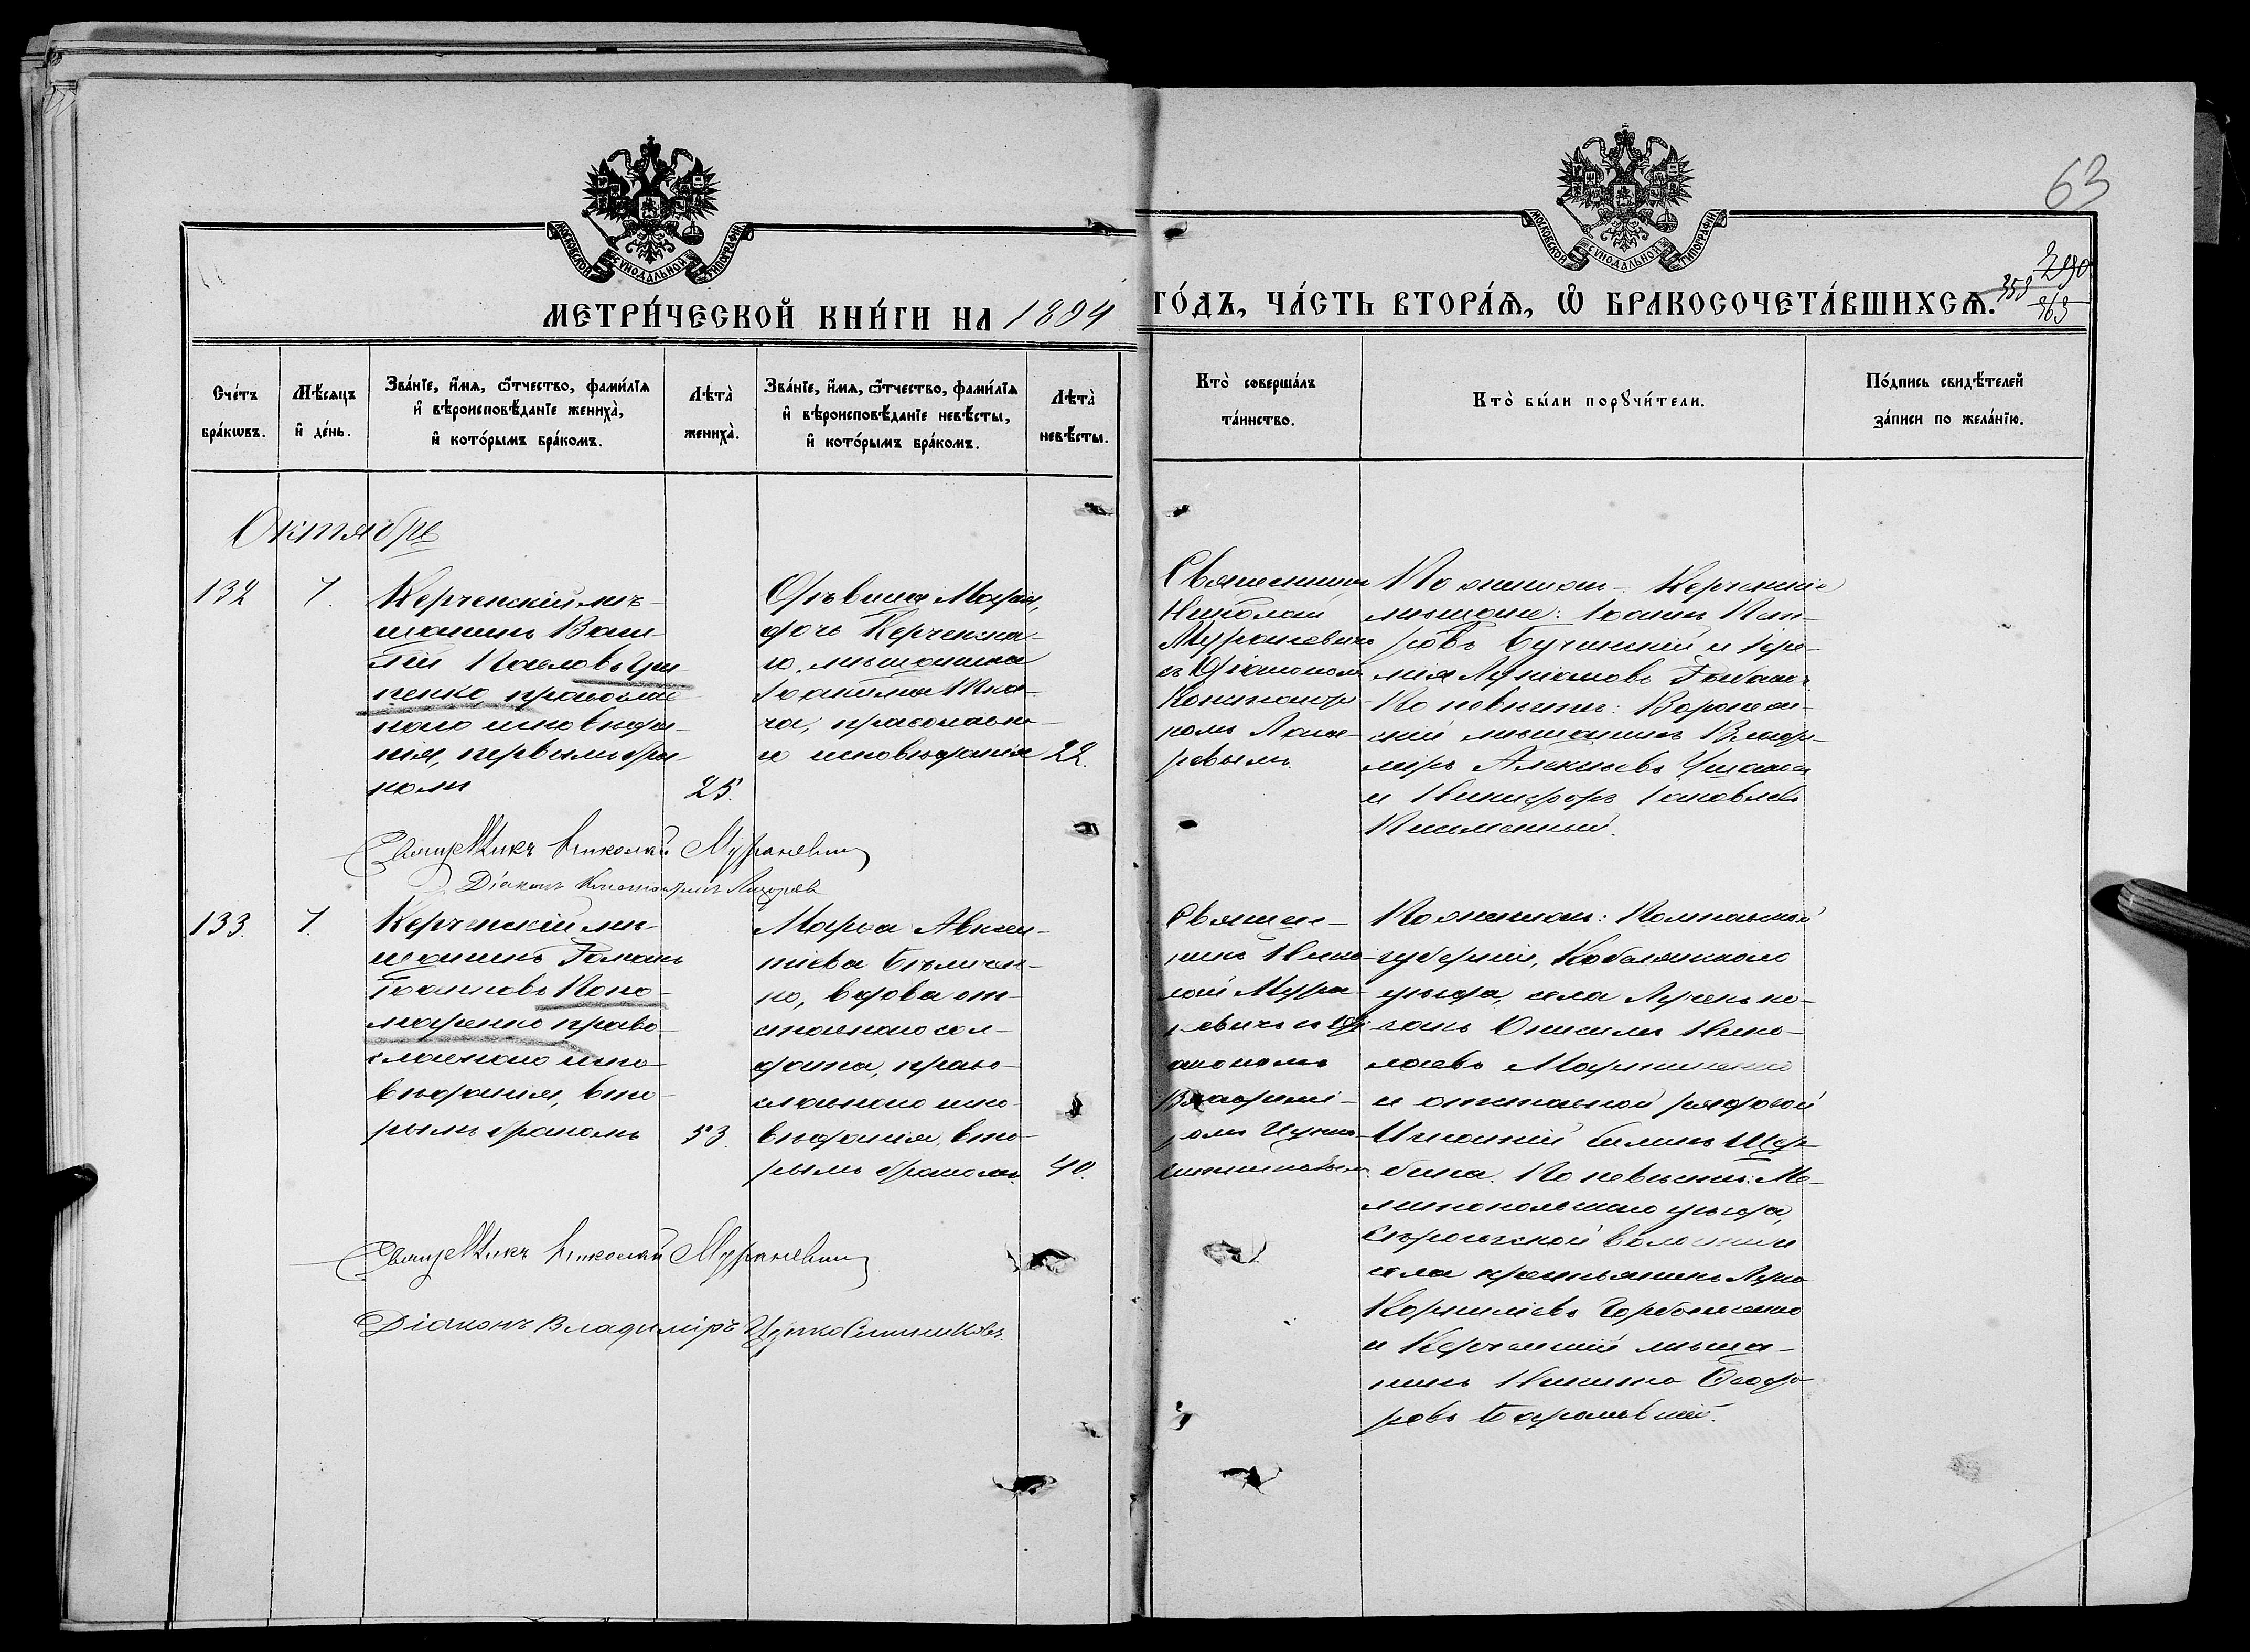 63
МОСКОВСКОЙ СѴНОДАЛЬНОЙ ТИПОГРАФІИ
МОСКОВСКОЙ СѴНОДАЛЬНОЙ ТИПОГРАФІИ
МЕТРИ́ЧЕСКОЙ КНИ́ГИ НА 1894 ГО́ДЪ, ЧА́СТЬ ВТОРА́Ѧ, Ѡ҆ БРАКОСОЧЕТА́ВШИХСѦ.
353
363
Сче́тъ бра́кѡвъ.
Мѣ́сѧцъ и҆ де́нь.
Зва́нїе, и҆́мѧ, ѻ҆́тчество, фами́лїѧ и҆ вѣроисповѣ́данїе жениха̀, и҆ кото́рымъ бра́комъ.
Лѣта̀ жениха̀.
Зва́нїе, и҆́мѧ, ѻ҆́тчество, фами́лїѧ и҆ вѣроисповѣ́данїе невѣ́сты, и҆ кото́рымъ бра́комъ.
Лѣта̀ невѣ́сты.
Кто̀ соверша́лъ та́инство.
Кто̀ бы́ли порꙋчи́тели.
По́дпись свидѣ́телей за́писи по жела́нїю.
Октябрь
132
7.
Керченскій мѣ-
щанинъ Васи-
лій Павловъ Ци-
пенко, православ-
наго исповѣда-
нія, первымъ бра-
комъ
25.
Дѣвица Марія,
дочь Керченска-
го мѣщанина
Іоакима Тка-
ча, православна-
го исповѣданія
22.
Священникъ
Николай
Мураневичъ
съ Діакономъ
Константи-
номъ Лаза-
ревымъ.
По женихѣ - Керченскіе
мѣщане: Іоаннъ Пет-
ровъ Бучинскій и Іере-
мія Лукіановъ
По невѣстѣ: Воронеж-
скій мѣщанинъ Влади-
міръ Алексѣевъ Ушаковъ
и Никифоръ Іаковлевъ
Письменный.
Священникъ Николай Мураневичъ
Діаконъ Константинъ Лазаревъ
133.
7.
Керченскій мѣ-
щанинъ Романъ
Іоанновъ Поно-
маренко право-
славнаго испо-
вѣданія, вто-
рымъ бракомъ
53.
Марѳа Авксен-
тіева Бѣличен-
ко, вдова от-
ставнаго сол-
дата, право-
славнаго испо-
вѣданія, вто-
рымъ бракомъ.
40.
Священ-
никъ Нико-
лай Мура-
невичъ съ Ді-
акономъ
Владимі-
ромъ Цукко-
По женихѣ: Полтавской
губерніи, Кобелякскаго
уѣзда, села Лучекъ ко-
закъ Онисимъ Нико-
лаевъ Мартыненко
и отставной рядовой
Игнатій Щер-
бина. По невѣстѣ: Ме-
литопольскаго уѣзда,
Сѣрогозской волости и
села крестьянинъ Лука
Корниліевъ Горбатенко
и Керченскій мѣща-
нинъ Никита Ѳеодо-
ровъ
Священникъ Николай Мураневичъ
Діаконъ Владиміръ